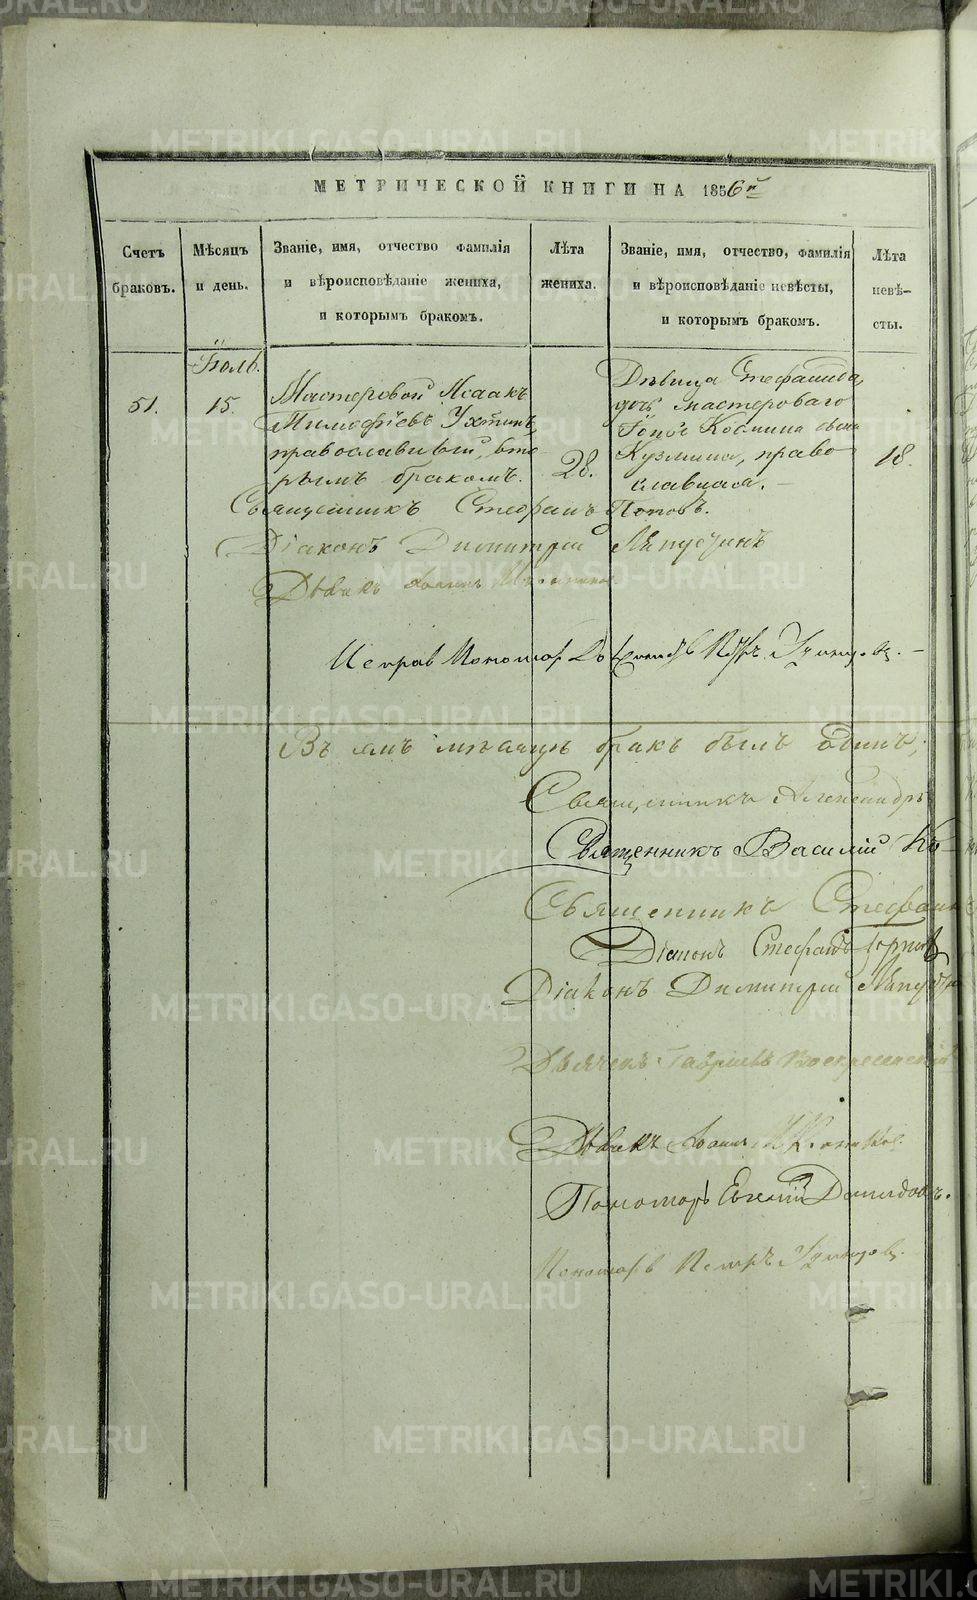 МЕТРИЧЕСКОЙ КНИГИ НА 1856й
Счетъ браковъ.
Мѣсяцъ и день.
Званіе, имя, отчество фамилія
и вѣроисповѣданіе жениха,
и которымъ бракомъ.
Лѣта жениха.
Званіе, имя, отчество, фамилія
и вѣроисповѣданіе невѣсты,
и которымъ бракомъ.
Лѣта невѣ-
сты.
Іюль.
51.
15.
Мастеровой Исаакъ
Тимофѣевъ
православный, вто
рымъ бракомъ.
28.
Дѣвица Стефанида,
дочь мастероваго
Космина сына
Кузмина, право
славная.
18.
Священникъ Стефанъ Поповъ.
Діаконъ Димитрій Ляпустинъ
Дьячекъ Іоаннъ
Пономарь
мѣсяцѣ бракъ былъ одинъ,
Священникъ Александръ
Священникъ Василій
Священникъ Стефанъ
Діаконъ Стефанъ
Діаконъ Димитрій Ляпустинъ
Дьячекъ Гавріилъ Воскресенскій
Дьячекъ Іоаннъ
Пономарь Евгеній Давыдовъ.
Пономарь Петръ
METRIKI.GASO-URAL.RU